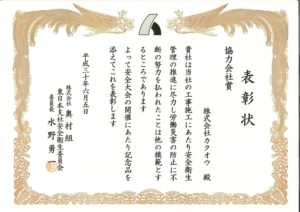 表彰状
協力会社賞
株式会社カクオウ 殿
貴社は当社の工事施工にあたり安全衛生
管理の推進に尽力し労働災害の防止に不
断の努力を払われたことは他の模範とす
るところであります
よって安全大会の開催にあたり記念品を
添えてこれを表彰します
平成三十年六月五日
株式会社 奥村組
東日本支社安全衛生委員会
委員長 水野勇一